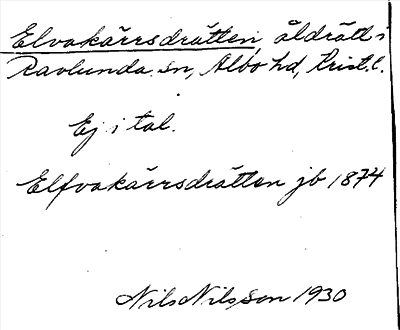 Elvakärrsdrätten, åldrätt i
Ravlunda sn, Albo hd, Krist. l.
Ej i tal.
Elfvakärrsdrätten jb 1874
Nils Nilsson 1930